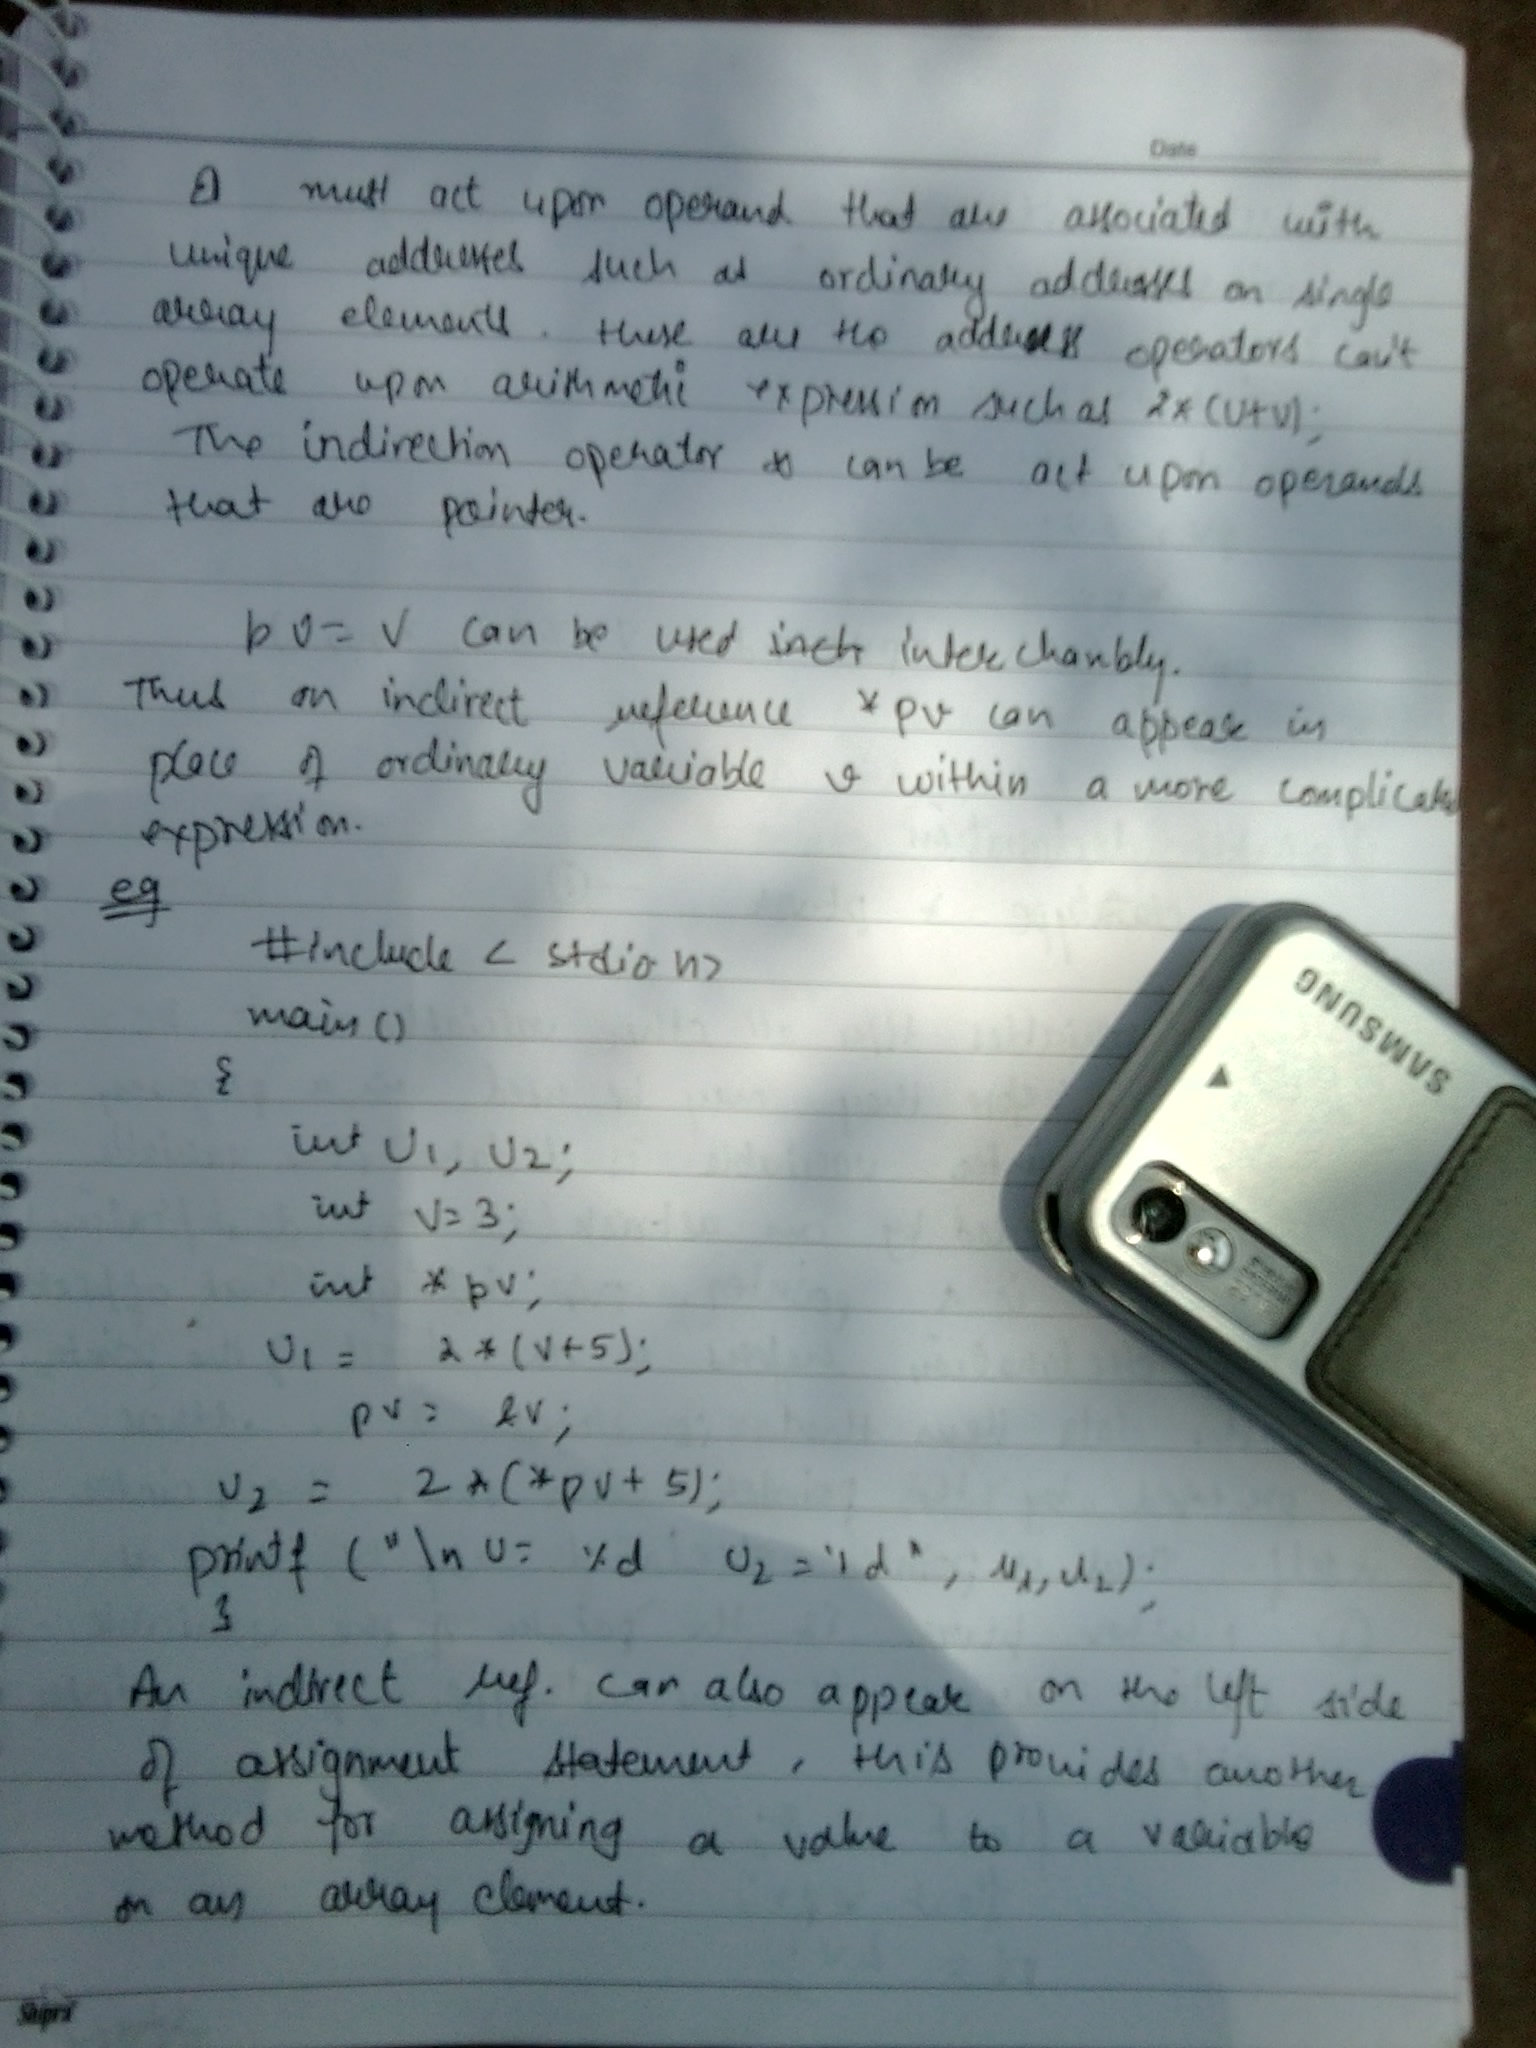 Date
must act upon operand that are associated with
unique addresses such as ordinary addresses or single
array elements. these are the address operators can't
operate upon arithmetic expression such as 2*(u+v);
The indirection operator * can be act upon operands
that are pointer.
pv = v can be used interchanbly.
Thus an indirect reference *pv can appear in
place of ordinary variable v within a more complicated
expression.
eg
#include < stdio h>
main()
{
int U1, U2;
int v=3;
int *pv;
U1 = 2*(v+5);
pv = &v;
U2 = 2*(*pv+5);
printf ("\n U= %d U2 = %d", u1, u2);
}
An indirect ref. can also appear on the left side
of assignment statement, this provides another
method for assigning a value to a variable
or an array element.
SAMSUNG
Shipra